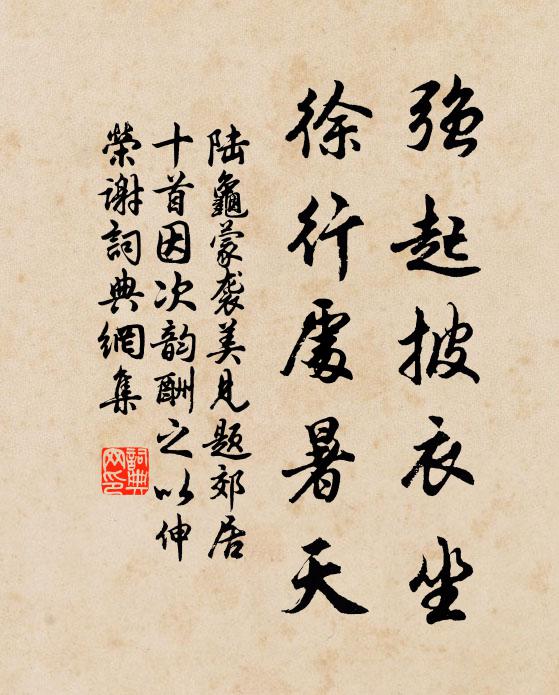 强起披衣坐
徐行处暑天
陆龜蒙袭美见题郊居
十首因次韵酬之以伸
荣谢詞典網集
詞典
网印